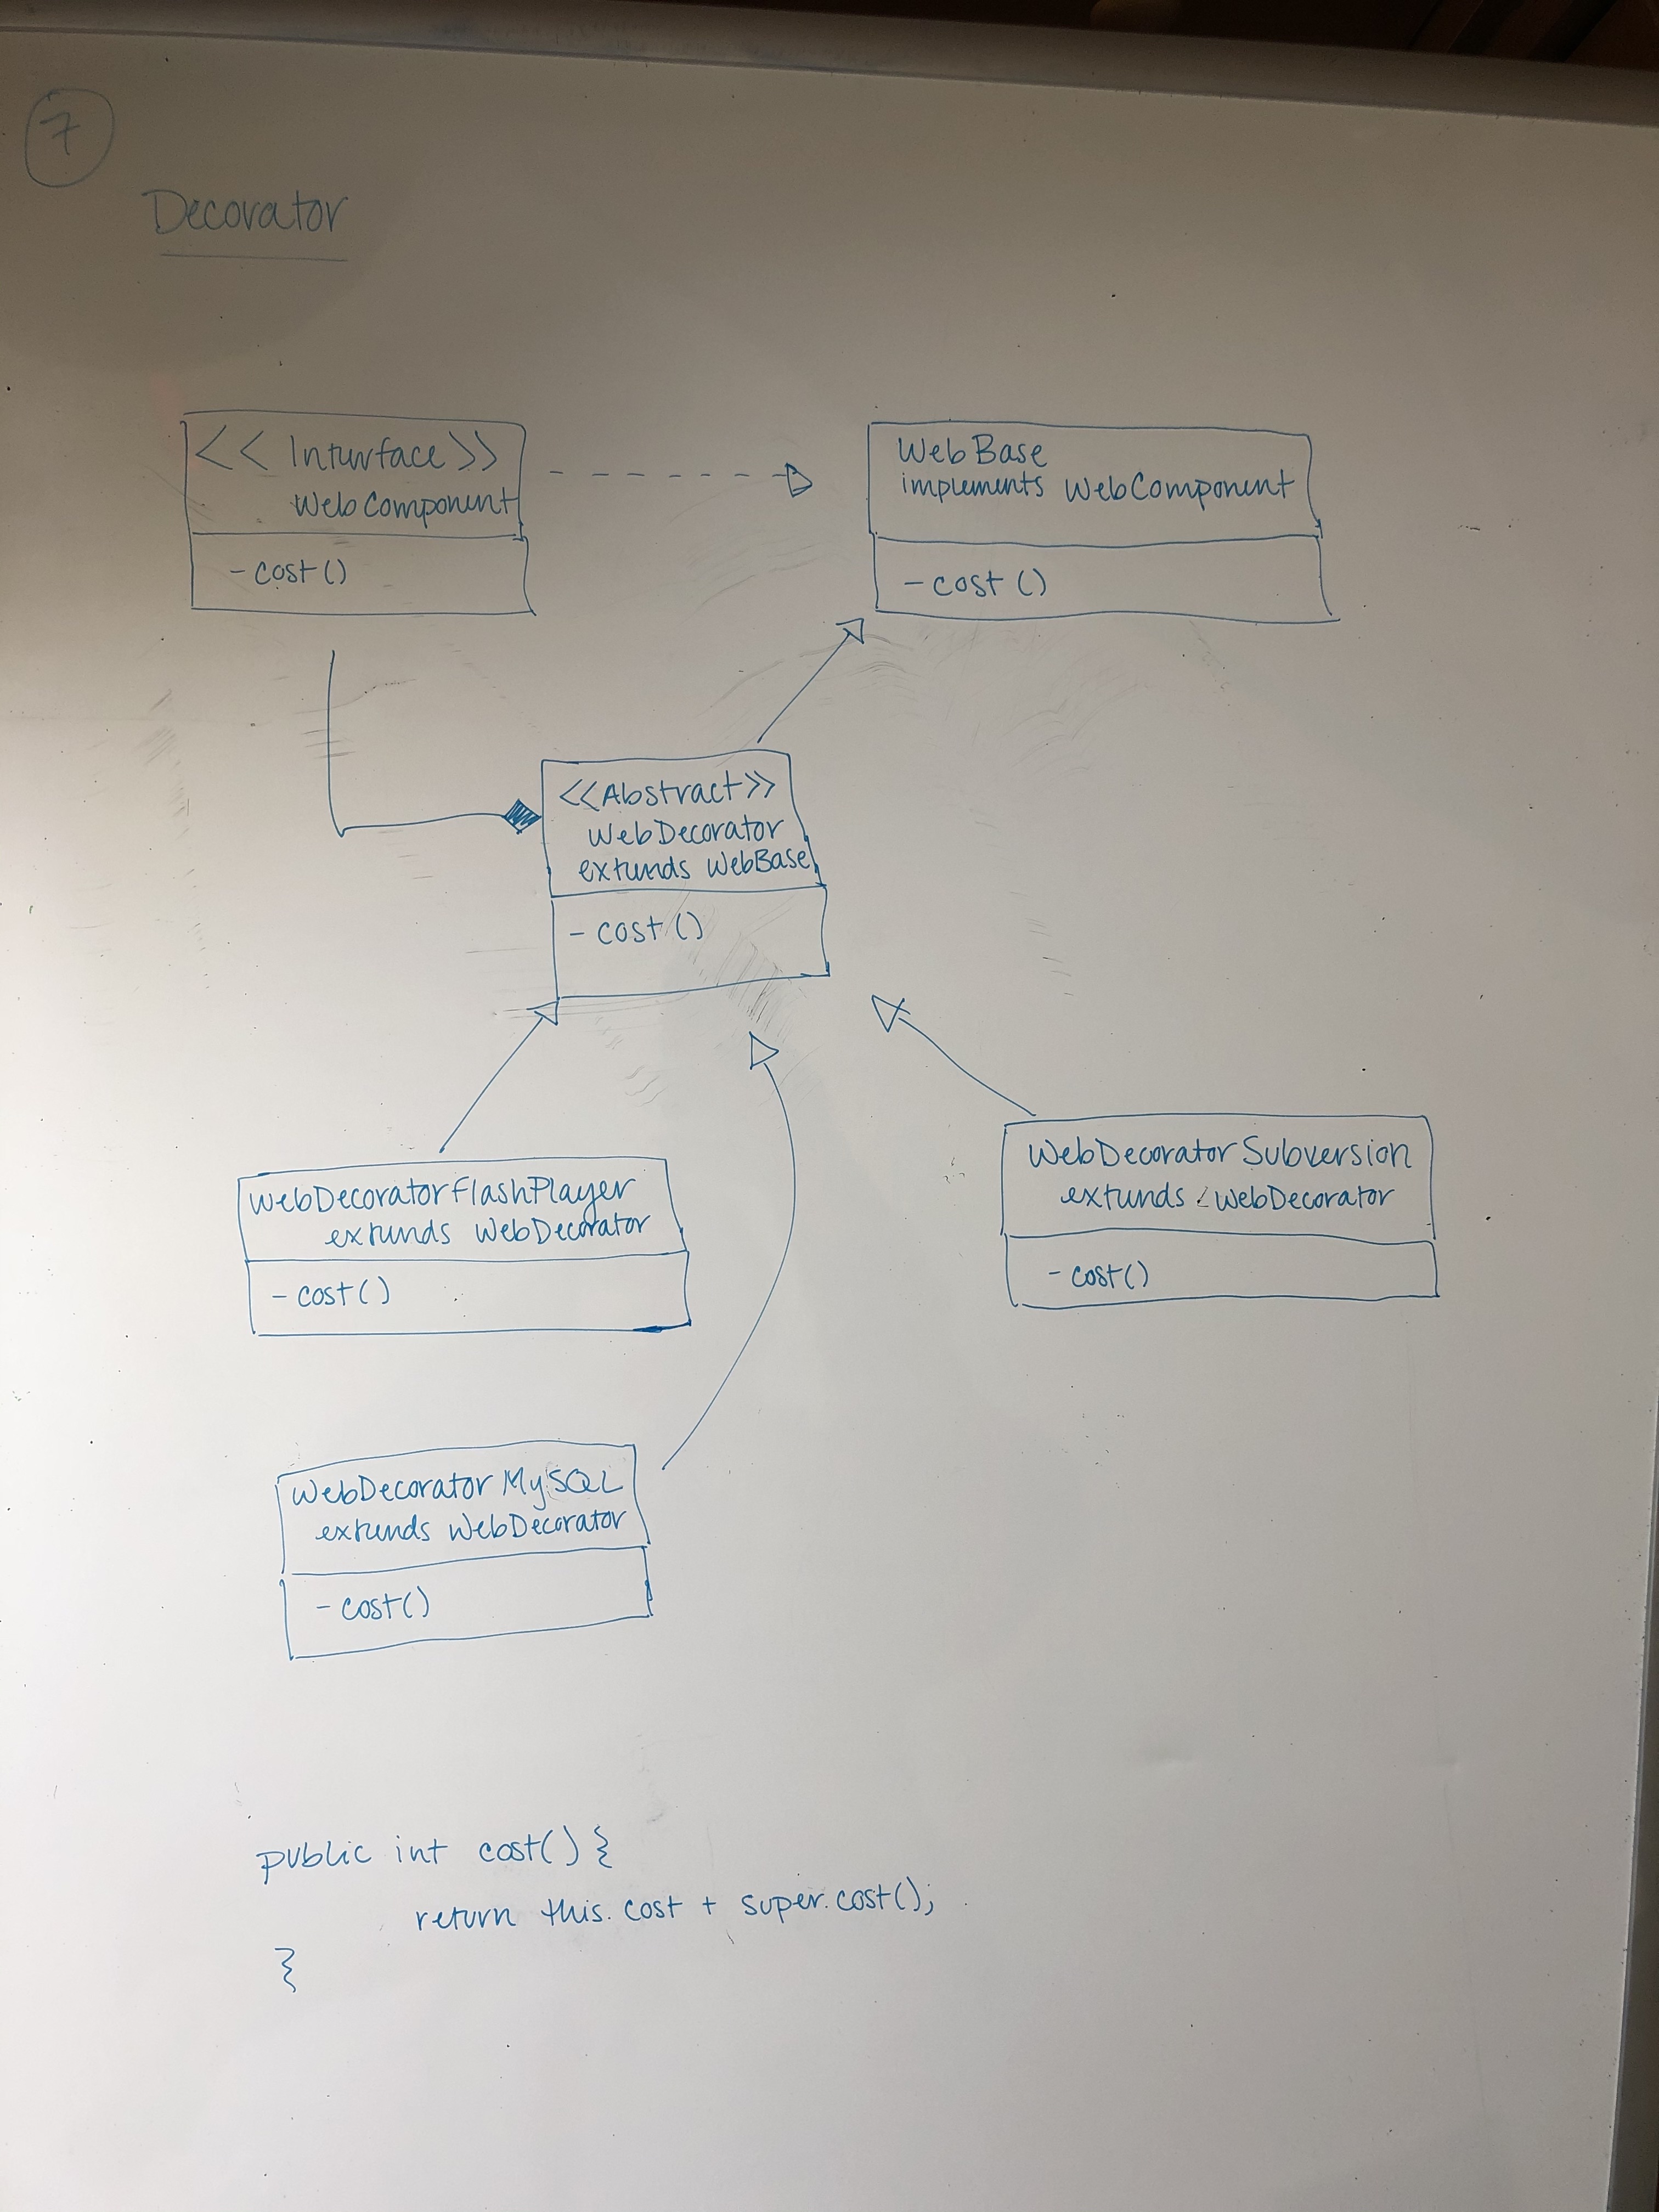 7
Decorator
<< Interface >>
WebComponent
- cost()
WebBase
implements WebComponent
- cost()
<<Abstract>>
WebDecorator
extends WebBase
- cost()
WebDecoratorFlashPlayer
extends WebDecorator
- cost()
WebDecoratorSubversion
extends WebDecorator
- cost()
WebDecoratorMySQL
extends WebDecorator
- cost()
public int cost() {
return this.cost + super.cost();
}